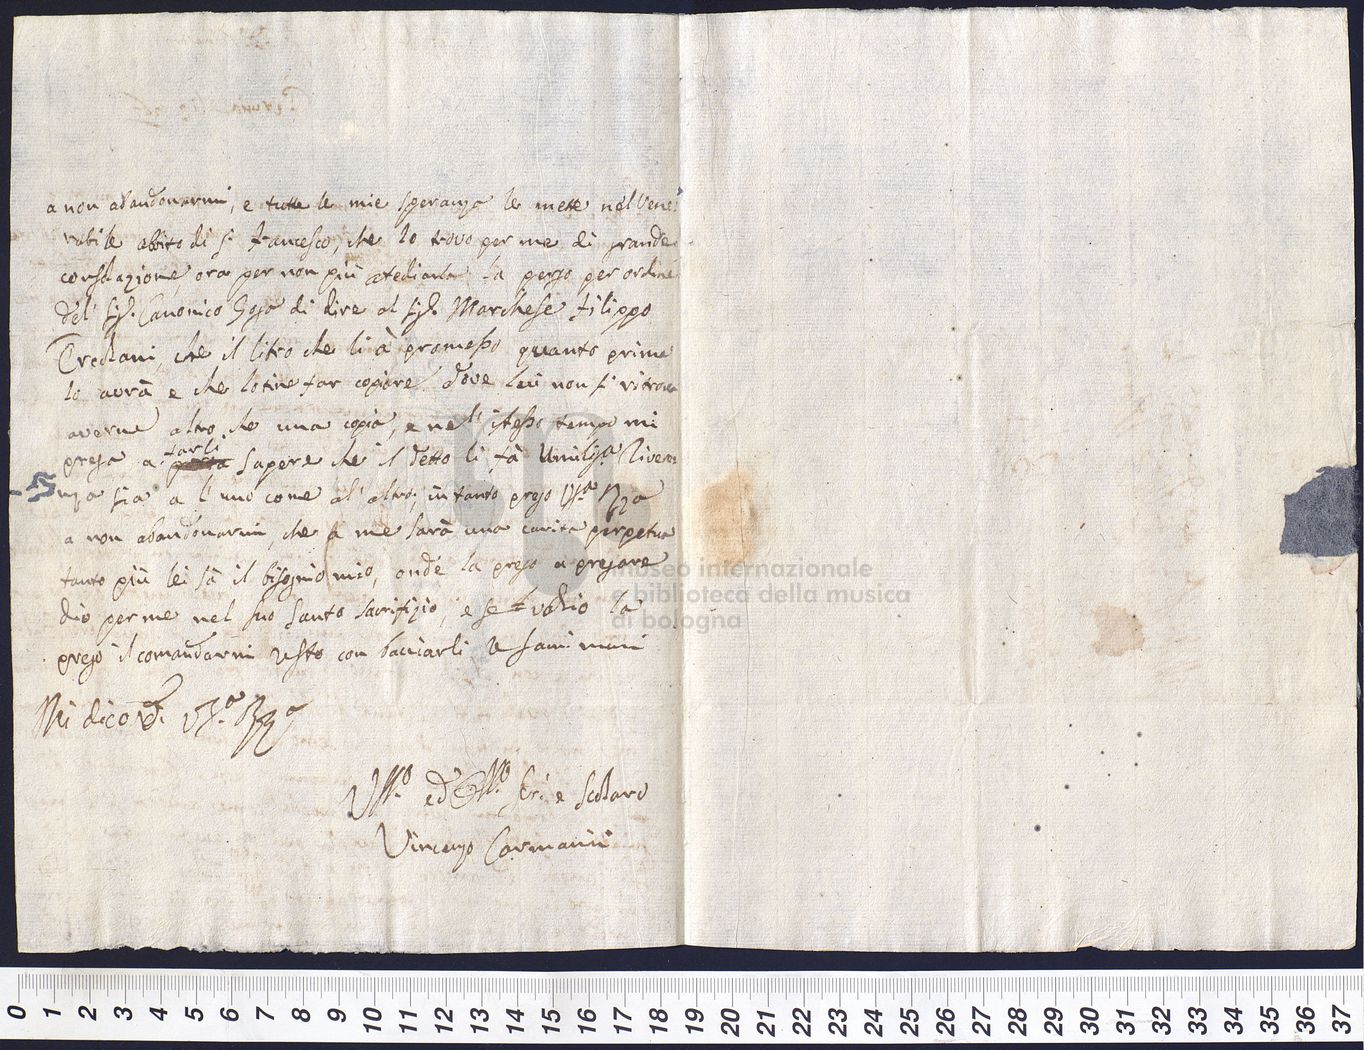 a non abandonarmi, e tutte le mie speranze le mette nel Vene:
rabile abito di S. Francesco, che lo trovo per me di grande
consolazione, ora per non più atediarla la prego per ordine
del Sig.r Canonico di dire al Sig.r Marchese Filippo
che il litro che li à promesso quanto prima
lo avrà e che lo tine far copiare dove lui non si ritrova
averne altro che una copia, e nel' istesso tempo mi
prega a farli sapere che il detto li fà Umilis.a Riveren
nza sia a l'uno come al' altro; in tanto prego
a non abandonarmi, che a me sarà una carita perpetua
tanto più lei sà il bisognio mio, onde la prego a pregare
dio per me nel suo Santo Sacrifizio, e se vaglio la
prego il comandarmi resto con bacciarli le sami mani
Mi dico di
ed Ser. e Scolaro
Vincenzo
museo internazionale
e biblioteca della musica
di bologna
0 1 2 3 4 5 6 7 8 9 10 11 12 13 14 15 16 17 18 19 20 21 22 23 24 25 26 27 28 29 30 31 32 33 34 35 36 37